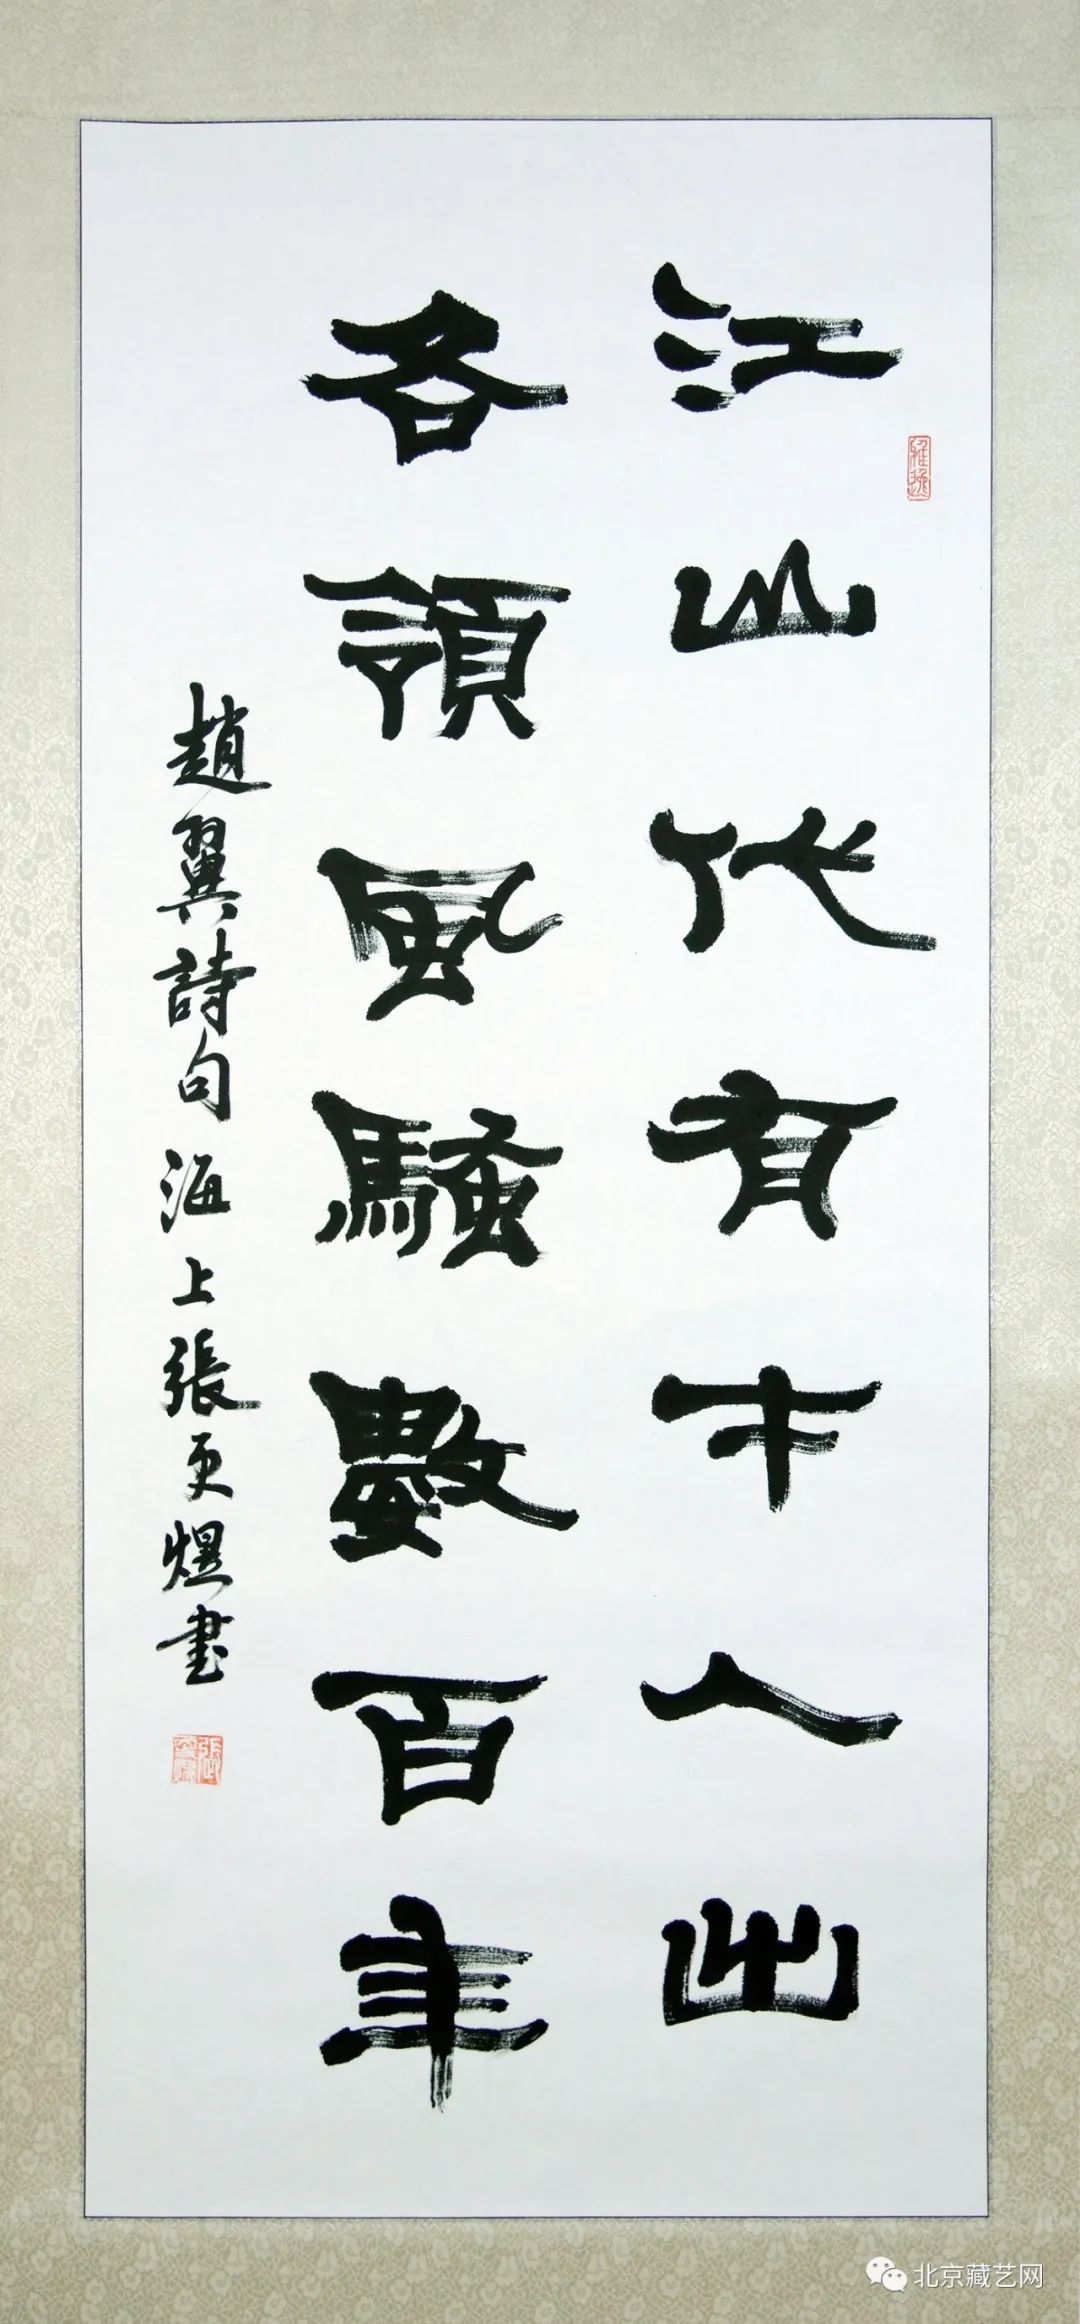 江山代有才人出
各領風騷數百年
趙翼詩句 海上張更煜書
雅逸
北京藏艺网